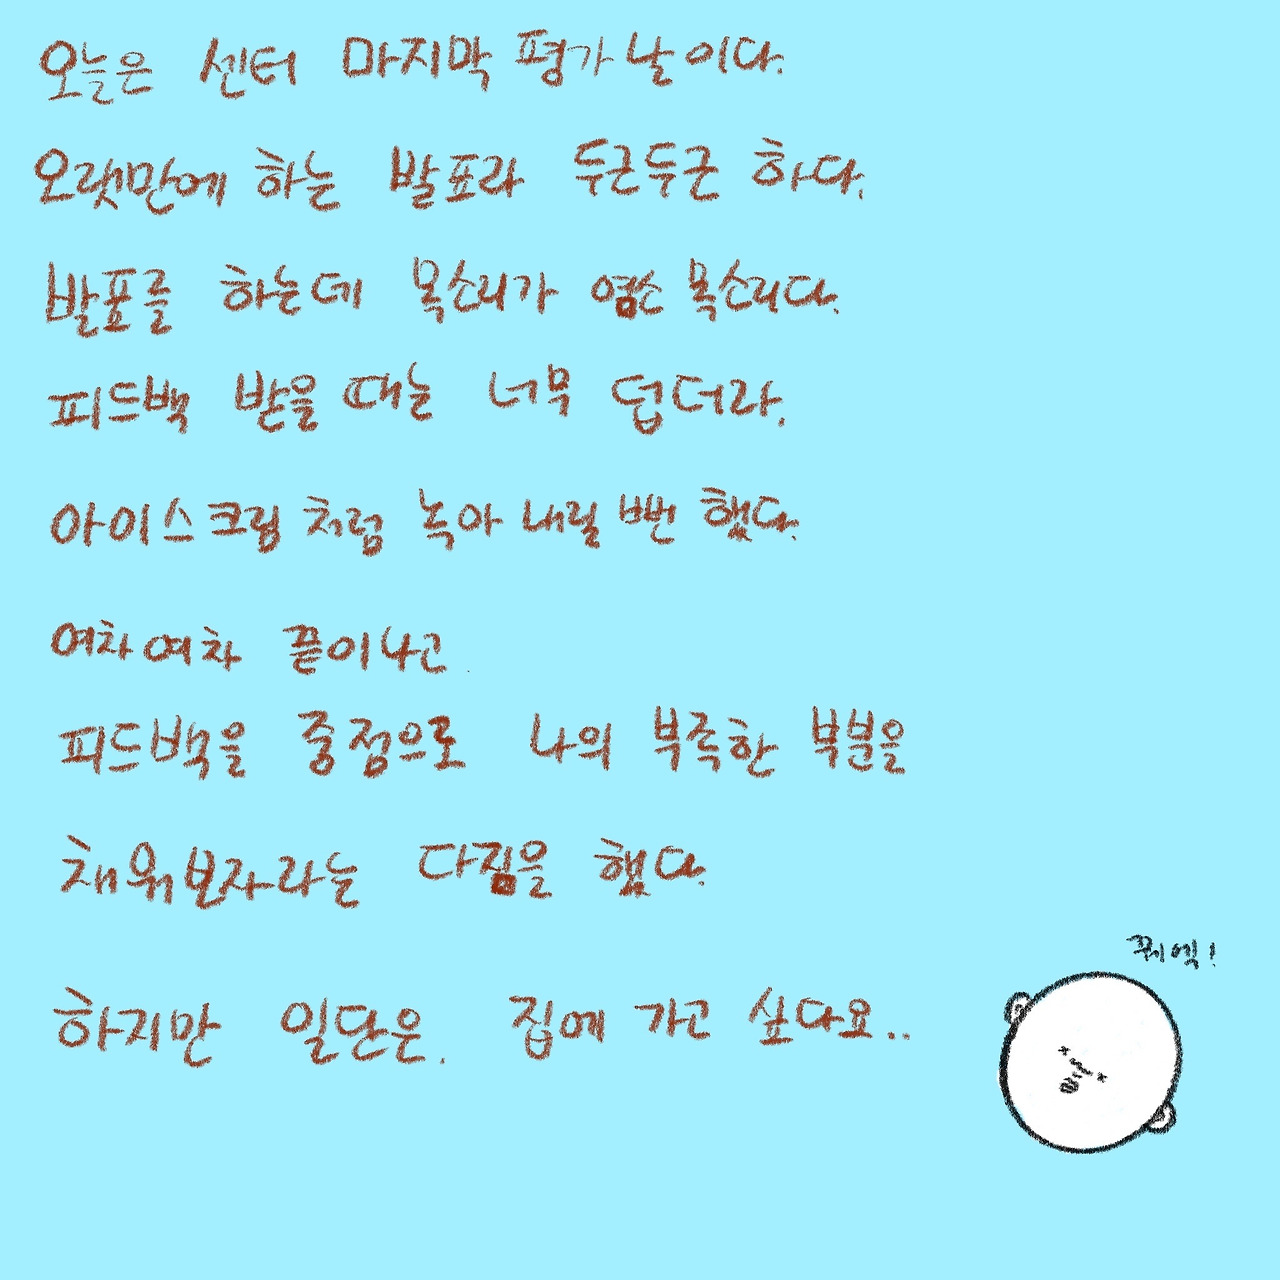 오늘은 센터 마지막 평가날이다.
오랫만에 하는 발표라 두근두근 하다.
발표를 하는데 목소리가 염소 목소리다.
피드백 받을 때는 너무 덥더라.
아이스크림 처럼 녹아 내릴 뻔 했다.
여차여차 끝이나고
피드백을 중점으로 나의 부족한 부분을
채워보자라는 다짐을 했다.
꿔엑!
하지만 일단은. 집에 가고 싶다요..